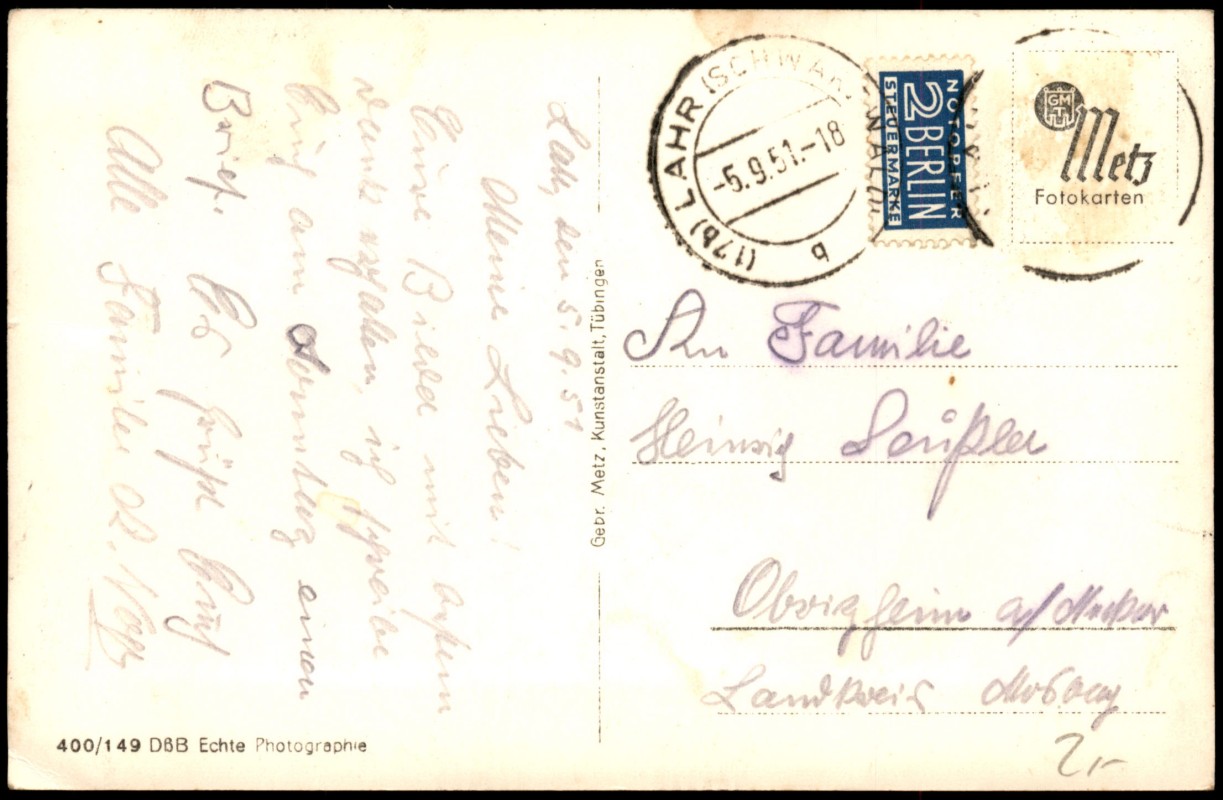 Lahr, den 5.9.51
Meine Lieben!
Eure Bilder mit bestem
Dank erhalten, ich schreibe
Euch am Sonntag einen
Brief. Es grüßt Euch
Alle Familie
Gebr. Metz, Kunstanstalt, Tübingen
400/149 DßB Echte Photographie
(17b) LAHR (SCHWARZWALD)
-5.9.51.-18
b
NOTOPFER
2 BERLIN
STEUERMARKE
GMT
Metz
Fotokarten
An Familie
Heinrich
Obrigheim a/Neckar
Landkreis Mosbach
2,-